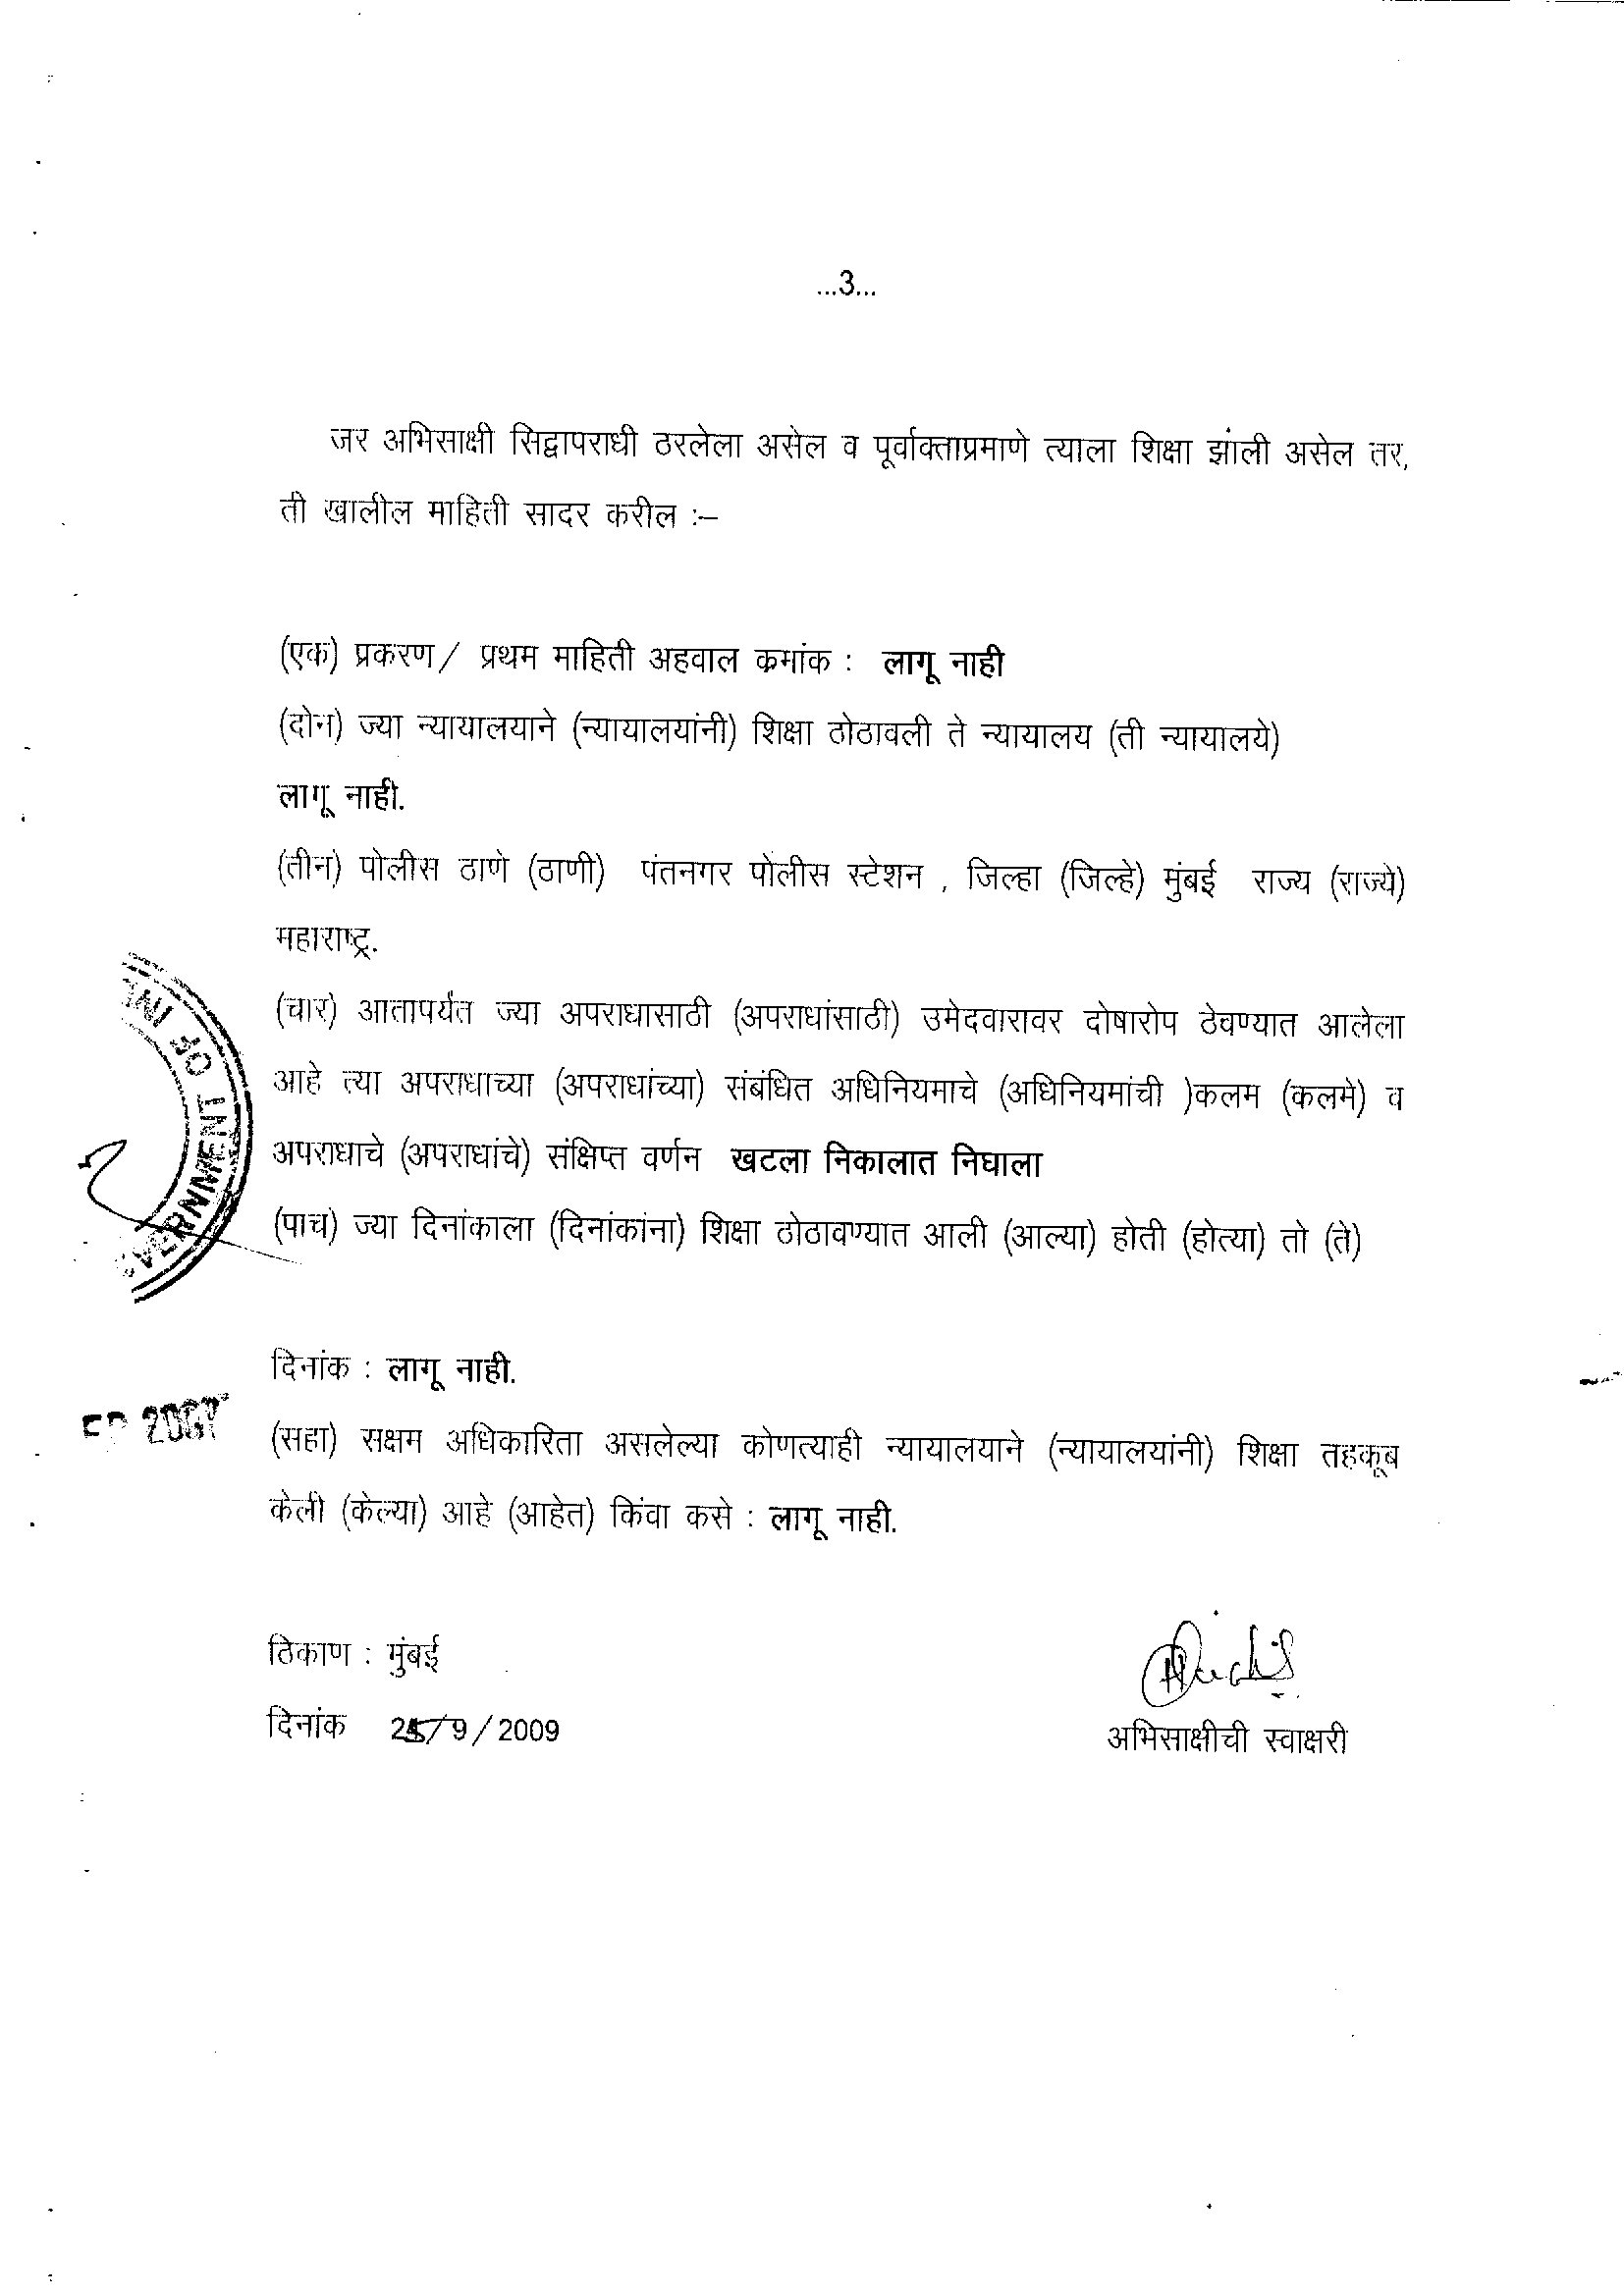 ...3...
जर अभिसाक्षी सिद्वापराधी ठरलेला असेल व पूर्वाक्ताप्रमाणे त्याला शिक्षा झाली असेल तर,
ती खालील माहिती सादर करील :–
(एक) प्रकरण/ प्रथम माहिती अहवाल कमांक : लागू नाही
(दोन) ज्या न्यायालयाने (न्यायालयांनी) शिक्षा ठोठावली ते न्यायालय (ती न्यायालये)
लागू नाही.
(तीन) पोलीस ठाणे (ठाणी) पंतनगर पोलीस स्टेशन , जिल्हा (जिल्हे) मुंबई राज्य (राज्ये)
महाराष्ट्र.
(चार) आतापर्यंत ज्या अपराधासाठी (अपराधांसाठी) उमेदवारावर दोषारोप ठेवण्यात आलेला
आहे त्या अपराधाच्या (अपराधांच्या) संबंधित अधिनियमाचे (अधिनियमांची )कलम (कलमे) व
अपराधाचे (अपराधांचे) संक्षिप्त वर्णन खटला निकालात निघाला
(पाच) ज्या दिनांकाला (दिनांकांना) शिक्षा ठोठावण्यात आली (आल्या) होती (होत्या) तो (ते)
दिनांक : लागू नाही.
(सहा) सक्षम अधिकारिता असलेल्या कोणत्याही न्यायालयाने (न्यायालयांनी) शिक्षा तहकूब
केली (केल्या) आहे (आहेत) किंवा कसे : लागू नाही.
ठिकाण : मुंबई
दिनांक 25/9/2009
अभिसाक्षीची स्वाक्षरी
VERNMENT OF IN